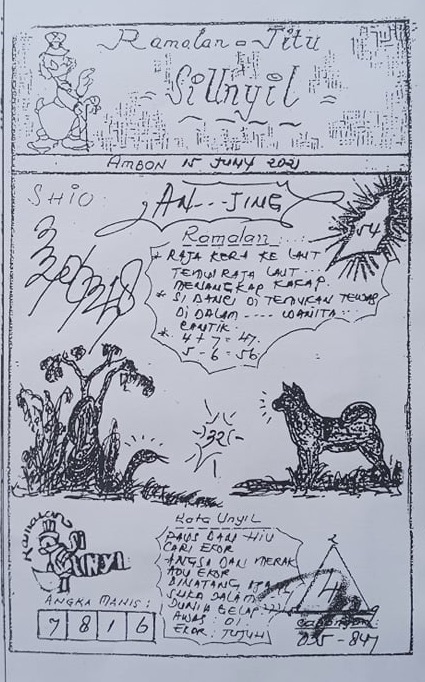 Ramalan = Jitu
SiUnyil
AMBON 15 JUNY 2021
SHIO:
AN---JING
54
Ramalan
* RAJA KERA KE LAUT
TEMUI RAJA LAUT...
MENANGKAP KAKAP.
* SI BANCI DI TEMUKAN TEWAS
DI DALAM ---- WANITA
CANTIK.
* 4 + 7 = 47.
5 - 6 = 56.
325
Kata Unyil
PAUS DAN HIU
CARI EKOR
ANGSA DAN MERAK
ADU EKOR
BINATANG APA
SUKA DALAM
DUNIA GELAP
AWAS: DI
EKOR: TUJUH
SI
UNYIL
ANGKA MANIS:
7 8 1 6
2
4
9
035 - 847